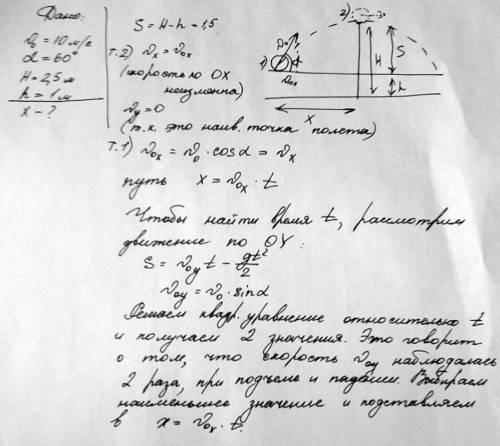 Дано:
v₀ = 10 м/с
α = 60°
H = 2,5 м
h = 1 м
x - ?
S = H - h = 1,5
т.2) vₓ = v₀ₓ
(скорость по OX
неизменна)
vy = 0
(т.к. это наив. точка полета)
т.1) v₀ₓ = v₀ · cos α = vₓ
путь x = v₀ₓ · t
Чтобы найти время t, рассмотрим
движение по OY:
S = v₀y t - gt²/2
v₀y = v₀ · sin α
Решаем квадр. уравнение относительно t
и получаем 2 значения. Это говорит
о том, что скорость v₀y наблюдалась
2 раза, при подъеме и падении. Выбираем
наименьшее значение и подставляем
в x = v₀ₓ · t.
1)
v₀
α
v₀ₓ
2)
H
S
h
x